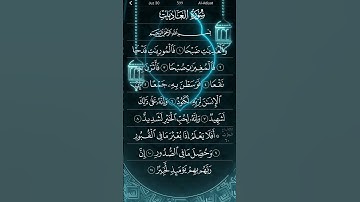 Juz 30 599 Al-Adiyat
سُورَةُ العَادِيَاتِ
بِسْمِ ٱللَّهِ ٱلرَّحْمَٰنِ ٱلرَّحِيمِ
وَٱلْعَٰدِيَٰتِ ضَبْحًا ١ فَٱلْمُورِيَٰتِ قَدْحًا
٢ فَٱلْمُغِيرَٰتِ صُبْحًا ٣ فَأَثَرْنَ
نَقْعًا ٤ فَوَسَطْنَ بِهِۦ جَمْعًا ٥
ٱلْإِنسَٰنَ لِرَبِّهِۦ لَكَنُودٌ ٦ وَإِنَّهُۥ عَلَىٰ ذَٰلِكَ
لَشَهِيدٌ ٧ وَإِنَّهُۥ لِحُبِّ ٱلْخَيْرِ لَشَدِيدٌ
٨ أَفَلَا يَعْلَمُ إِذَا بُعْثِرَ مَا فِى ٱلْقُبُورِ
٩ وَحُصِّلَ مَا فِى ٱلصُّدُورِ ١٠ إِنَّ
رَبَّهُم بِهِمْ يَوْمَئِذٍ لَّخَبِيرٌۢ ١١